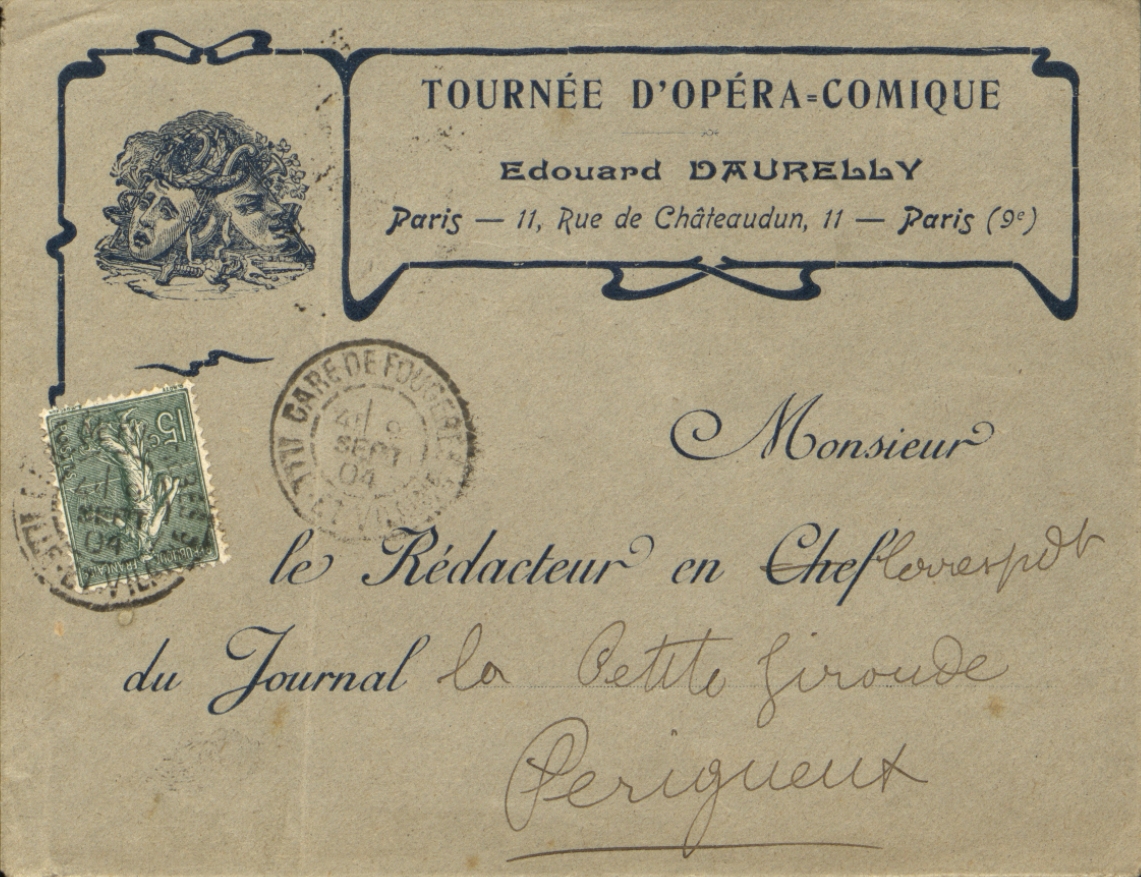 TOURNÉE D'OPÉRA=COMIQUE
Edouard DAURELLY
Paris — 11, Rue de Châteaudun, 11 — Paris (9e)
GARE DE FOUGERES
ILLE-ET-VILAINE
SEPT
04
15c
POSTES
SEPT
04
Monsieur
le Rédacteur en Chef Correspdt
du Journal la Petite Gironde
Perigueux